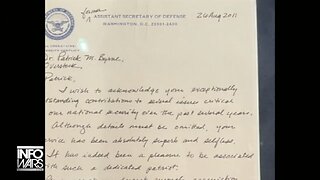 former
ASSISTANT SECRETARY OF DEFENSE
WASHINGTON, D.C. 20301-2400
26 Aug 2011
Dr. Patrick M. Byrne,
Overstock
Patrick,
I wish to acknowledge your exceptionally
outstanding contributions to several issues critical
our national security over the past several years.
Although details must be omitted, your
service has been absolutely superb and selfless.
It has indeed been a pleasure to be associated
with such a dedicated patriot.
INFO
WARS